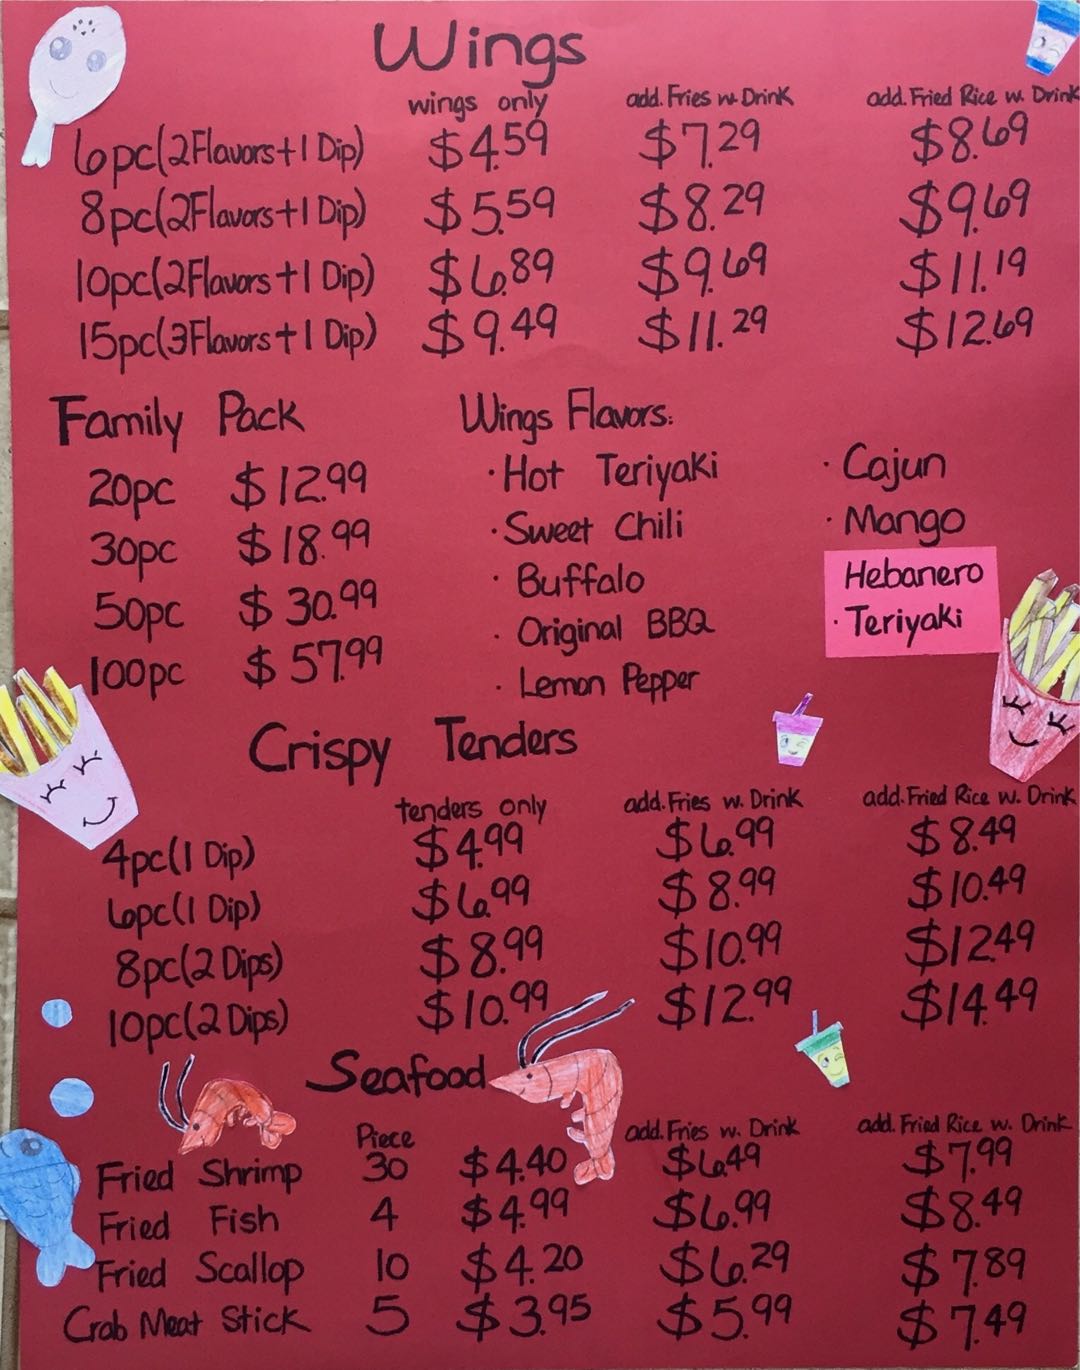 Wings
wings only add. Fries w. Drink add. Fried Rice w. Drink
6pc(2Flavors+1 Dip) $4.59 $7.29 $8.69
8pc(2Flavors+1 Dip) $5.59 $8.29 $9.69
10pc(2Flavors+1 Dip) $6.89 $9.69 $11.19
15pc(3Flavors+1 Dip) $9.49 $11.29 $12.69
Family Pack
20pc $12.99
30pc $18.99
50pc $30.99
100pc $57.99
Wings Flavors:
· Hot Teriyaki
· Sweet Chili
· Buffalo
· Original BBQ
· Lemon Pepper
· Cajun
· Mango
Hebanero
· Teriyaki
Crispy Tenders
tenders only add. Fries w. Drink add. Fried Rice w. Drink
4pc(1 Dip) $4.99 $6.99 $8.49
6pc(1 Dip) $6.99 $8.99 $10.49
8pc(2 Dips) $8.99 $10.99 $12.49
10pc(2 Dips) $10.99 $12.99 $14.49
Seafood
Piece add. Fries w. Drink add. Fried Rice w. Drink
Fried Shrimp 30 $4.40 $6.49 $7.99
Fried Fish 4 $4.99 $6.99 $8.49
Fried Scallop 10 $4.20 $6.29 $7.89
Crab Meat Stick 5 $3.95 $5.99 $7.49